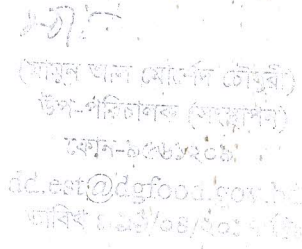 (মামুন আল মোর্শেদ চৌধুরী)
উপ-পরিচালক (সংস্থাপন)
ফোন-৯৫৬১২০৯
dd.est@dgfood.gov.bd
তারিখ